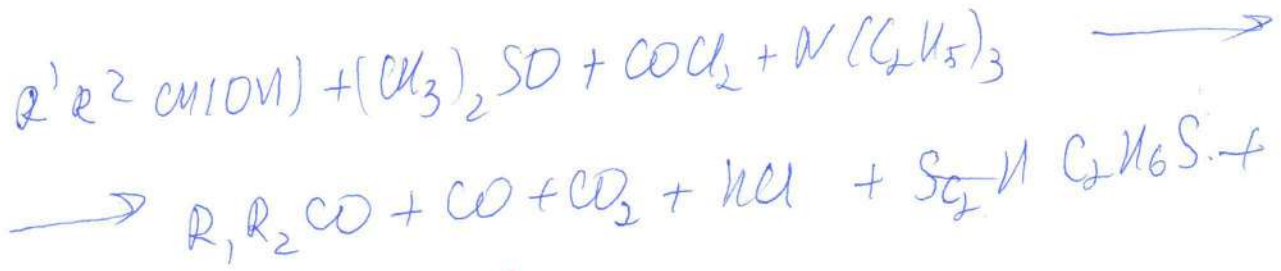 R¹R² CH(OH) + (CH₃)₂SO + COCl₂ + N(C₂H₅)₃ →
→ R₁R₂CO + CO + CO₂ + HCl + C₂H₆S +